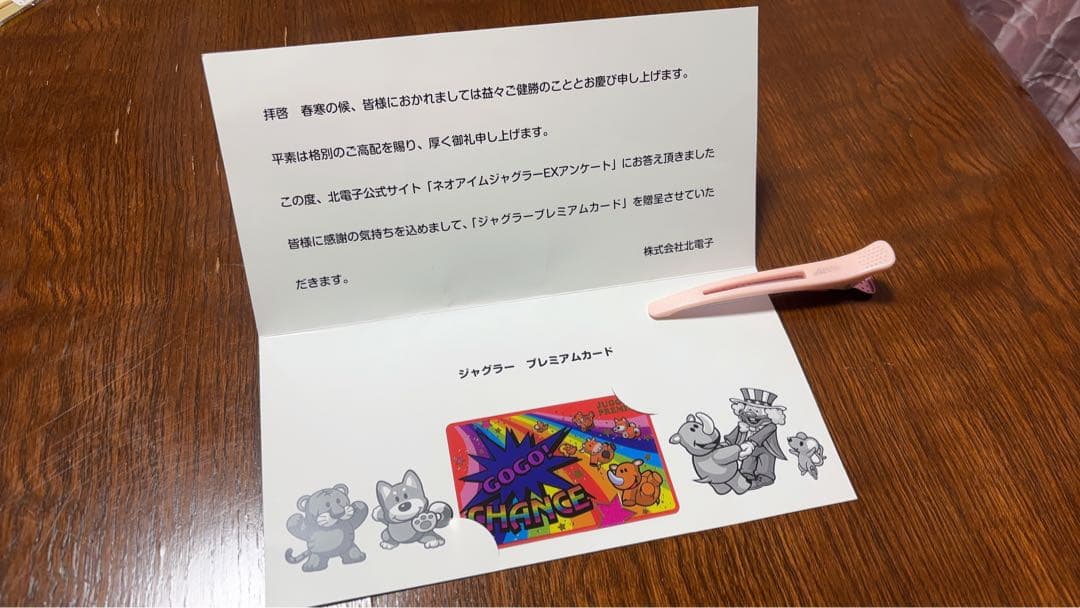 拝啓　春寒の候、皆様におかれましては益々ご健勝のこととお慶び申し上げます。
平素は格別のご高配を賜り、厚く御礼申し上げます。
この度、北電子公式サイト「ネオアイムジャグラーEXアンケート」にお答え頂きました
皆様に感謝の気持ちを込めまして、「ジャグラープレミアムカード」を贈呈させていた
だきます。
株式会社北電子
ジャグラー　プレミアムカード
GOGO!
CHANCE